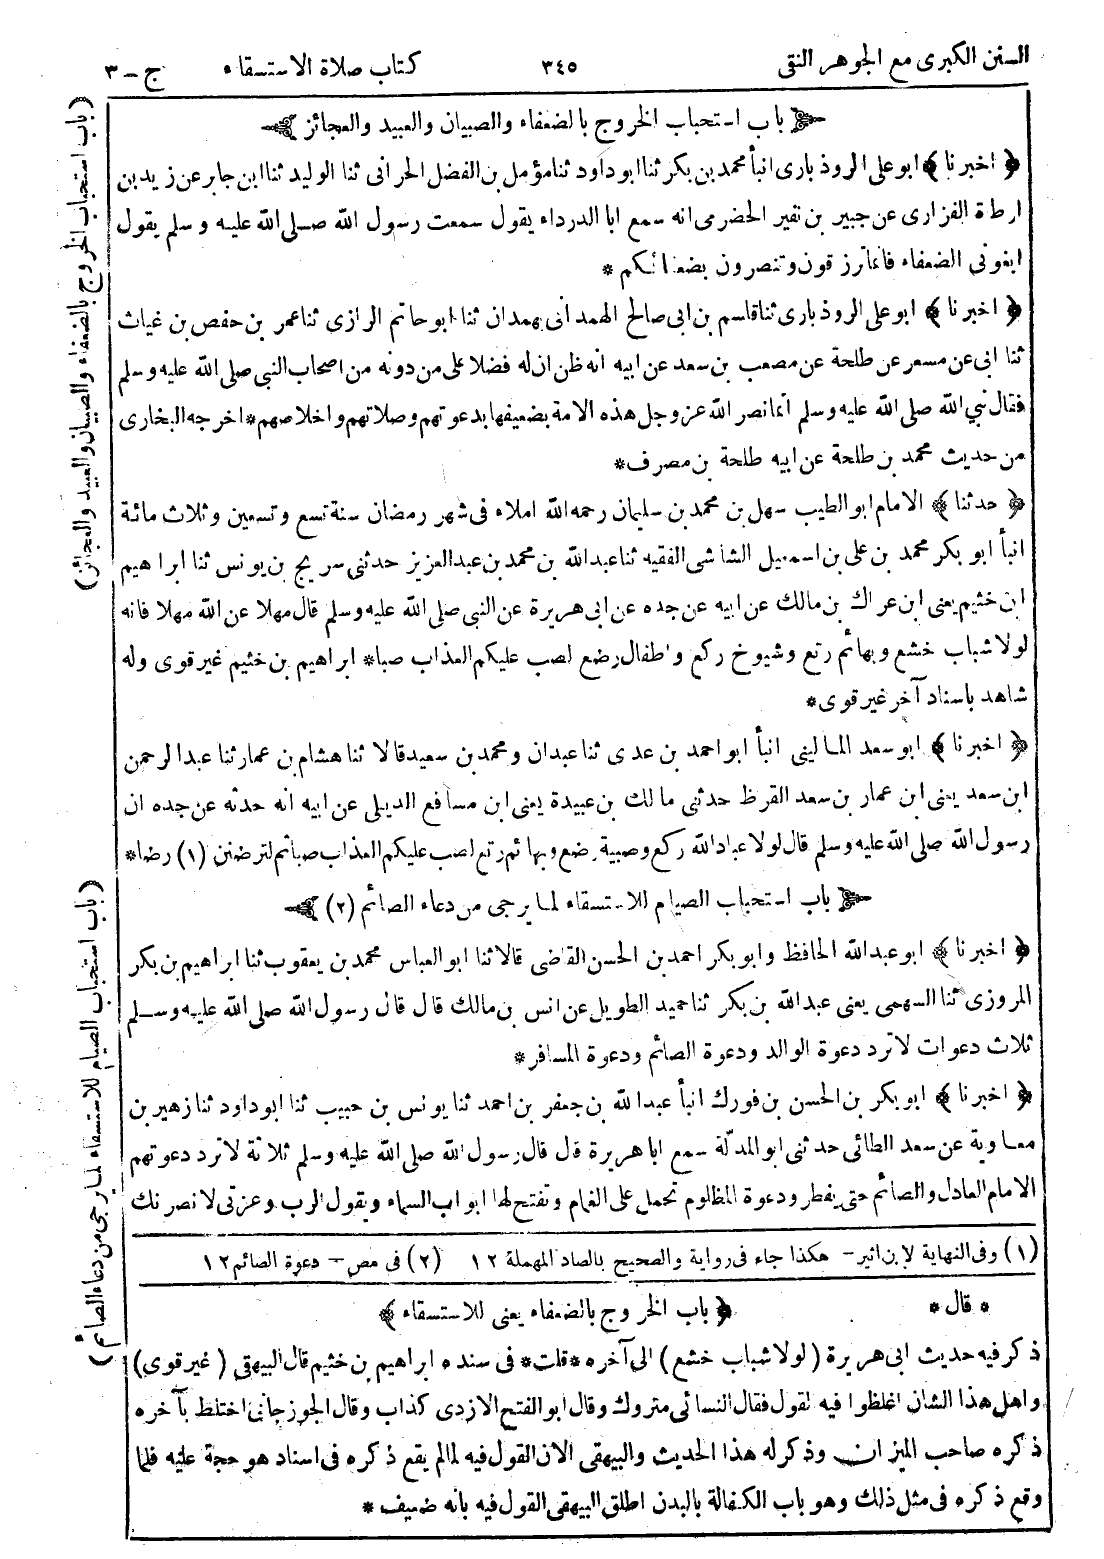 السنن الكبرى مع الجوهر النقى ٣٤٥ كتاب صلاة الاستسقاء ج - ٣
﴿ باب استحباب الخروج بالضعفاء والصبيان والعبيد والعجائز ﴾
﴿ اخبرنا ﴾ ابو على الروذبارى انبأ محمد بن بكر ثنا ابو داود ثنا مؤمل بن الفضل الحرانى ثنا الوليد ثنا ابن جابر عن زيد بن
ارطاة الفزارى عن جبير بن نفير الحضرمى انه سمع ابا الدرداء يقول سمعت رسول الله صلى الله عليه وسلم يقول
ابغونى الضعفاء فانما ترزقون وتنصرون بضعفائكم *
﴿ اخبرنا ﴾ ابو على الروذبارى ثنا قاسم بن ابى صالح الهمدانى بهمدان ثنا ابو حاتم الرازى ثنا عمر بن حفص بن غياث
ثنا ابى عن مسعر عن طلحة عن مصعب بن سعد عن ابيه انه ظن ان له فضلا على من دونه من اصحاب النبى صلى الله عليه وسلم
فقال نبي الله صلى الله عليه وسلم انما نصر الله عز وجل هذه الامة بضعيفها بدعوتهم وصلاتهم واخلاصهم * اخرجه البخارى
من حديث محمد بن طلحة عن ابيه طلحة بن مصرف *
﴿ حدثنا ﴾ الامام ابو الطيب سهل بن محمد بن سليمان رحمه الله املاء فى شهر رمضان سنة تسع وتسعين وثلاث مائة
انبأ ابو بكر محمد بن على بن اسمعيل الشاشى الفقيه ثنا عبد الله بن محمد بن عبد العزيز حدثنى سريج بن يونس ثنا ابراهيم
ابن خثيم يعنى ابن عراك بن مالك عن ابيه عن جده عن ابى هريرة عن النبى صلى الله عليه وسلم قال مهلا عن الله مهلا فانه
لولا شباب خشع وبهائم رتع وشيوخ ركع واطفال رضع لصب عليكم العذاب صبا * ابراهيم بن خثيم غير قوى وله
شاهد باسناد آخر غير قوى *
﴿ اخبرنا ﴾ ابو سعد المالينى انبأ ابو احمد بن عدى ثنا عبدان ومحمد بن سعيد قالا ثنا هشام بن عمار ثنا عبد الرحمن
ابن سعد يعنى ابن عمار بن سعد القرظ حدثنى مالك بن عبيدة يعنى ابن مسافع الديلى عن ابيه انه حدثه عن جده ان
رسول الله صلى الله عليه وسلم قال لولا عباد الله ركع وصبية رضع وبهائم رتع لصب عليكم العذاب صبا ثم لترضنن (١) رضا *
﴿ باب استحباب الصيام للاستسقاء لما يرجى من دعاء الصائم (٢) ﴾
﴿ اخبرنا ﴾ ابو عبد الله الحافظ وابو بكر احمد بن الحسن القاضى قالا ثنا ابو العباس محمد بن يعقوب ثنا ابراهيم بن بكر
المروزى ثنا السهمى يعنى عبد الله بن بكر ثنا حميد الطويل عن انس بن مالك قال قال رسول الله صلى الله عليه وسلم
ثلاث دعوات لا ترد دعوة الوالد ودعوة الصائم ودعوة المسافر *
﴿ اخبرنا ﴾ ابو بكر بن الحسن بن فورك انبأ عبد الله بن جعفر بن احمد ثنا يونس بن حبيب ثنا ابو داود ثنا زهير بن
معاوية عن سعد الطائى حدثنى ابو المدلّة سمع ابا هريرة قال قال رسول الله صلى الله عليه وسلم ثلاثة لا ترد دعوتهم
الامام العادل والصائم حتى يفطر ودعوة المظلوم تحمل على الغمام وتفتح لها ابواب السماء ويقول الرب وعزتى لانصرنك
(١) وفى النهاية لابن اثير - هكذا جاء فى رواية والصحيح بالصاد المهملة ١٢ (٢) فى مص - دعوة الصائم ١٢
* قال * ﴿ باب الخروج بالضعفاء يعنى للاستسقاء ﴾
ذكر فيه حديث ابى هريرة (لولا شباب خشع) الى آخره * قلت * فى سنده ابراهيم بن خثيم قال البيهقى (غير قوى)
واهل هذا الشان اغلظوا فيه القول فقال النسائى متروك وقال ابو الفتح الازدى كذاب وقال الجوزجانى اختلط بآخره
ذكره صاحب الميزان وذكر له هذا الحديث والبيهقى الان القول فيه لما لم يقع ذكره فى اسناد هو حجة عليه فلما
وقع ذكره فى مثل ذلك وهو باب الكفالة بالبدن اطلق البيهقى القول فيه بانه ضعيف *
(باب استحباب الخروج بالضعفاء والصبيان والعبيد والعجائز)
(باب استحباب الصيام للاستسقاء لما يرجى من دعاء الصائم)